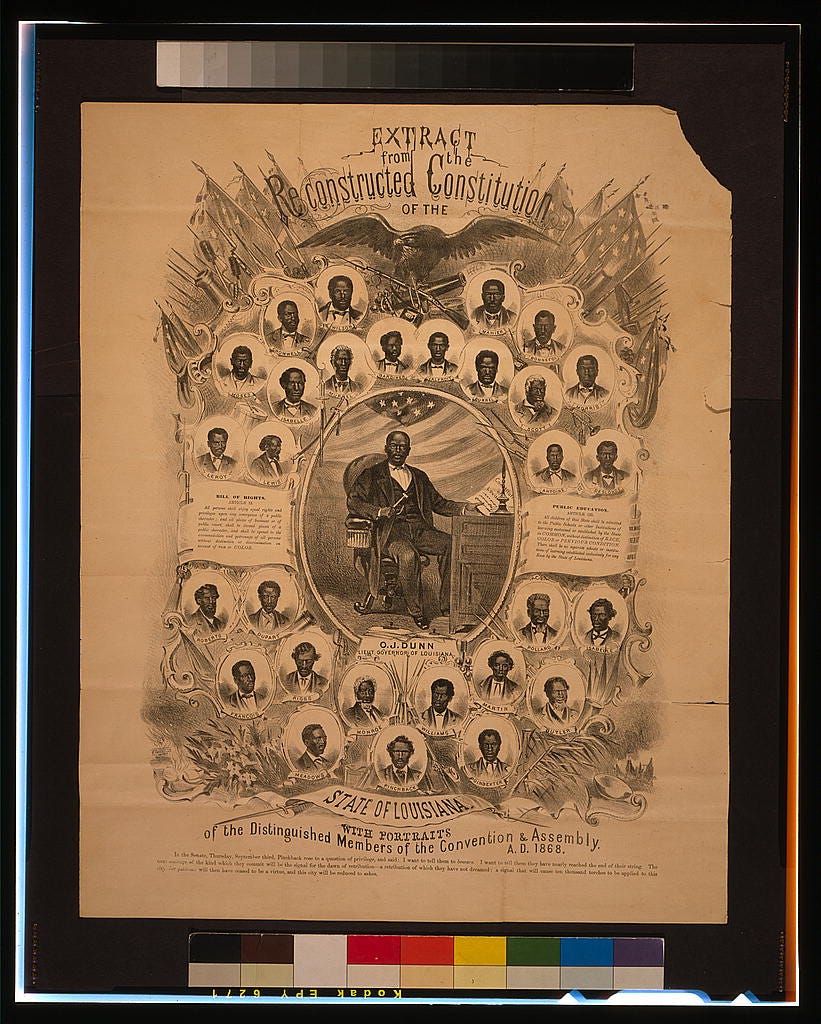 EXTRACT
from the
Reconstructed Constitution
OF THE
WILSON
MOSES
ISABELLE
SCOTT
MORRIS
LEROY
LEWIS
ANTOINE
BILL OF RIGHTS.
All persons shall enjoy equal rights and
privileges upon any conveyance of a public
character; and all places of business or of
public resort, shall be deemed places of a
public character, and shall be opened to the
accommodation and patronage of all persons
without distinction or discrimination on
account of race or COLOR.
PUBLIC EDUCATION.
ARTICLE 135.
All children of this State shall be admitted
to the Public Schools or other Institutions of
learning sustained or established by the State
in COMMON, without distinction of RACE,
COLOR or PREVIOUS CONDITION.
There shall be no separate schools or institu-
tions of learning established exclusively for any
Race by the State of Louisiana.
ROBERTS
DUPART
POLLARD
ISABELLE
O.J. DUNN
LIEUT. GOVERNOR OF LOUISIANA.
FRANCOIS
RIGGS
MONROE
WILLIAMS
MARTIN
BUTLER
MEADOWS
PINCHBACK
POINDEXTER
STATE OF LOUISIANA.
WITH PORTRAITS
of the Distinguished Members of the Convention & Assembly.
A.D. 1868.
In the Senate, Thursday, September third, Pinchback rose to a question of privilege, and said: I want to tell them to beware. I want to tell them they have nearly reached the end of their string. The
next outrage of the kind which they commit will be the signal for the dawn of retribution—a retribution of which they have not dreamed; a signal that will cause ten thousand torches to be applied to this
city, for patience will then have ceased to be a virtue, and this city will be reduced to ashes.
Kodak EPY 6271